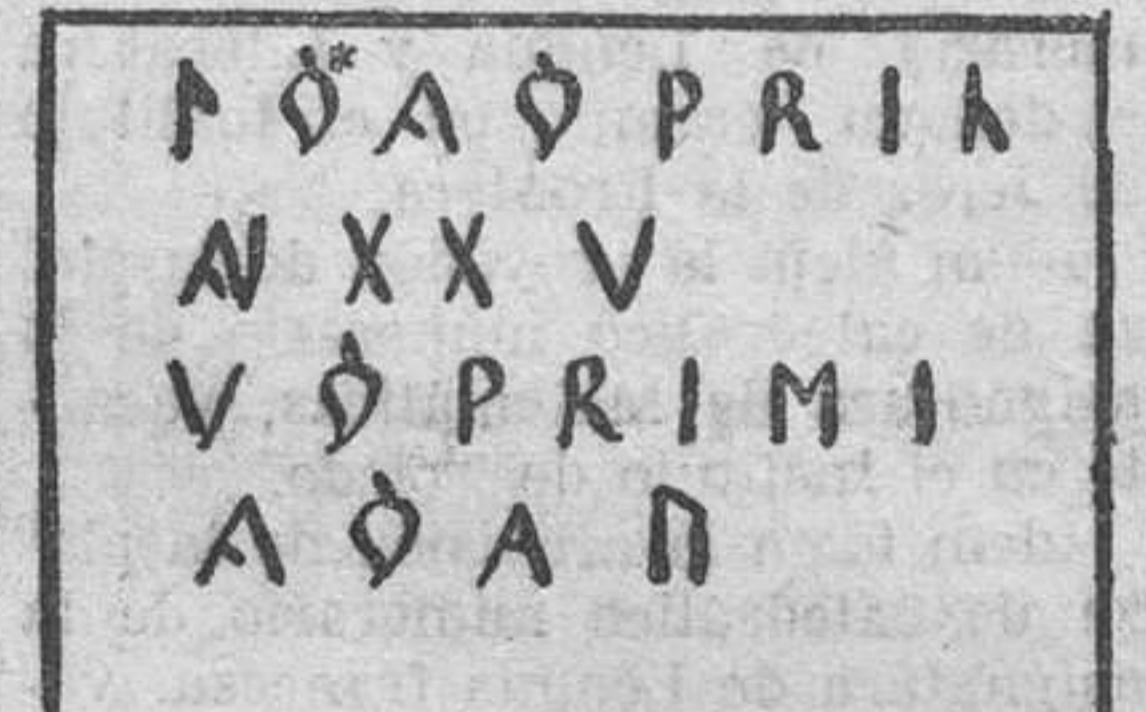 ᛚ ❦* A ❦ P R I h
AN X X V
V ❦ P R I M I
A ❦ A Π